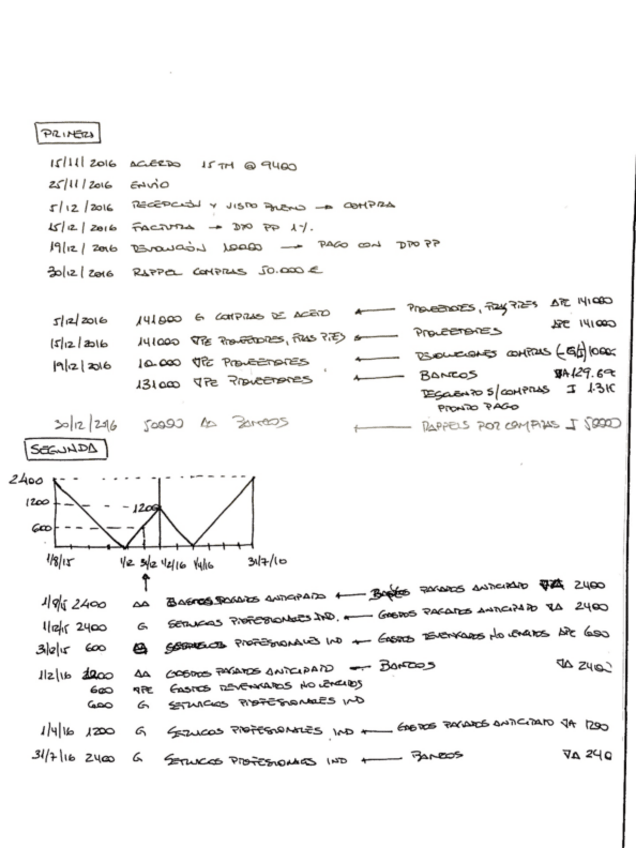 PRIMERA
15/11/2016 ACUERDO 15 TM @ 9400
25/11/2016 ENVIO
5/12/2016 RECEPCIÓN Y VISTO BUENO → COMPRA
15/12/2016 FACTURA → DTO PP 1%.
19/12/2016 DEVOLUCIÓN 10000 → PAGO CON DTO PP
30/12/2016 RAPPEL COMPRAS 50.000 €
5/12/2016 141000 G COMPRAS DE ACERO ← PROVEEDORES, FRAS PTES ΔPE 141000
15/12/2016 141000 ∇PE PROVEEDORES, FRAS PTES ← PROVEEDORES ΔPE 141000
19/12/2016 10.000 ∇PE PROVEEDORES ← DEVOLUCIONES COMPRAS
131000 ∇PE PROVEEDORES ← BANCOS ∇A 129.6
DESCUENTO S/COMPRAS I 1.31
PRONTO PAGO
30/12/2016 50000 ΔA BANCOS ← RAPPELS POR COMPRAS I 50000
SEGUNDA
2400
1200 1200
600
1/8/15 1/12 31/12 1/2/16 1/4/16 31/7/10
1/8/15 2400 ΔA GASTOS PAGADOS ANTICIPADO ← PAGADOS ANTICIPADO ∇A 2400
1/12/15 2400 G SERVICIOS PROFESIONALES IND. ← GASTOS PAGADOS ANTICIPADO ∇A 2400
31/12/15 600 G SERVICIOS PROFESIONALES IND ← GASTOS DEVENGADOS NO VENCIDOS ΔPE 600
1/2/16 1200 ΔA GASTOS PAGADOS ANTICIPADO ← BANCOS ∇A 2400
600 ∇PE GASTOS DEVENGADOS NO VENCIDOS
600 G SERVICIOS PROFESIONALES IND
1/4/16 1200 G SERVICIOS PROFESIONALES IND ← GASTOS PAGADOS ANTICIPADO ∇A 1200
31/7/16 2400 G SERVICIOS PROFESIONALES IND ← BANCOS ∇A 240